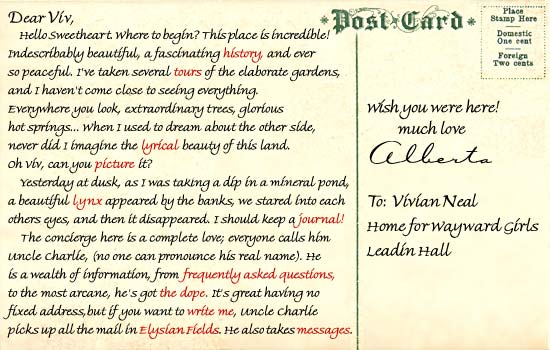 Dear Viv,
Hello Sweetheart. Where to begin? This place is incredible!
Indescribably beautiful, a fascinating history, and ever
so peaceful. I've taken several tours of the elaborate gardens,
and I haven't come close to seeing everything.
Everywhere you look, extraordinary trees, glorious
hot springs... When I used to dream about the other side,
never did I imagine the lyrical beauty of this land.
Oh Viv, can you picture it?
Yesterday at dusk, as I was taking a dip in a mineral pond,
a beautiful lynx appeared by the banks, we stared into each
others eyes, and then it disappeared. I should keep a journal!
The concierge here is a complete love; everyone calls him
Uncle Charlie, (no one can pronounce his real name). He
is a wealth of information, from frequently asked questions,
to the most arcane, he's got the dope. It's great having no
fixed address,but if you want to write me, Uncle Charlie
picks up all the mail in Elysian Fields. He also takes messages.
Post Card
Place
Stamp Here
Domestic
One cent
Foreign
Two cents
Wish you were here!
much love
Alberta
To: Vivian Neal
Home for Wayward Girls
Leadin Hall